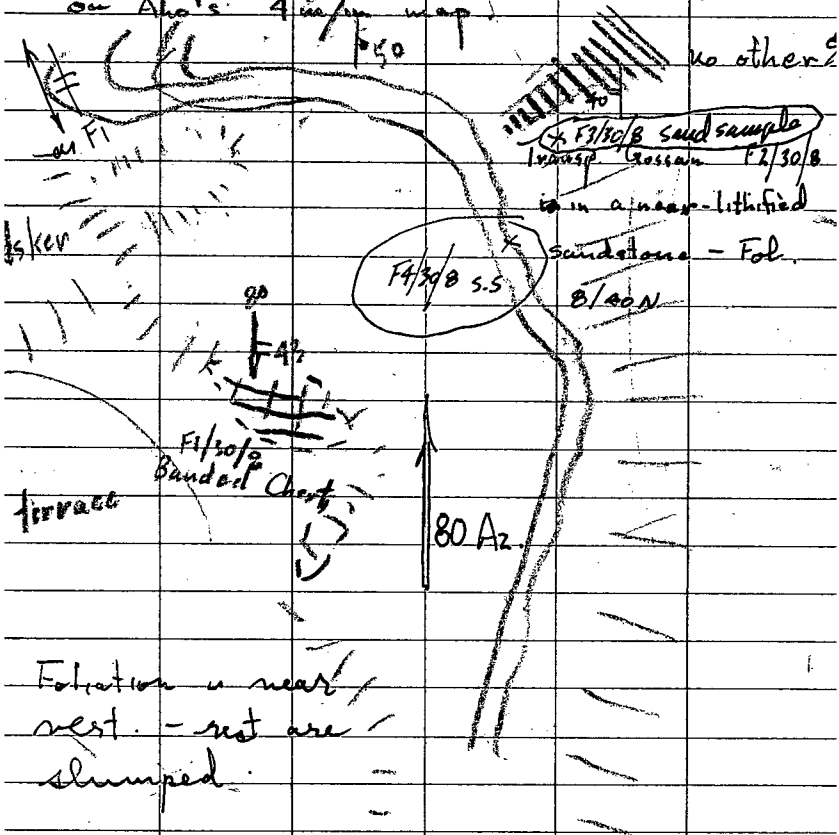 on Aho's 4 mi/in map.
50
no other
40
F3/30/8 sand sample
on F1
Transp. Gossan F2/30/8
is in a near-lithified
sandstone - Fol.
8/40N
F4/30/8 S.S
80
F1/30/8
Banded Chert
terrace
80 Az.
Foliation is near
vert. - rest are
slumped.